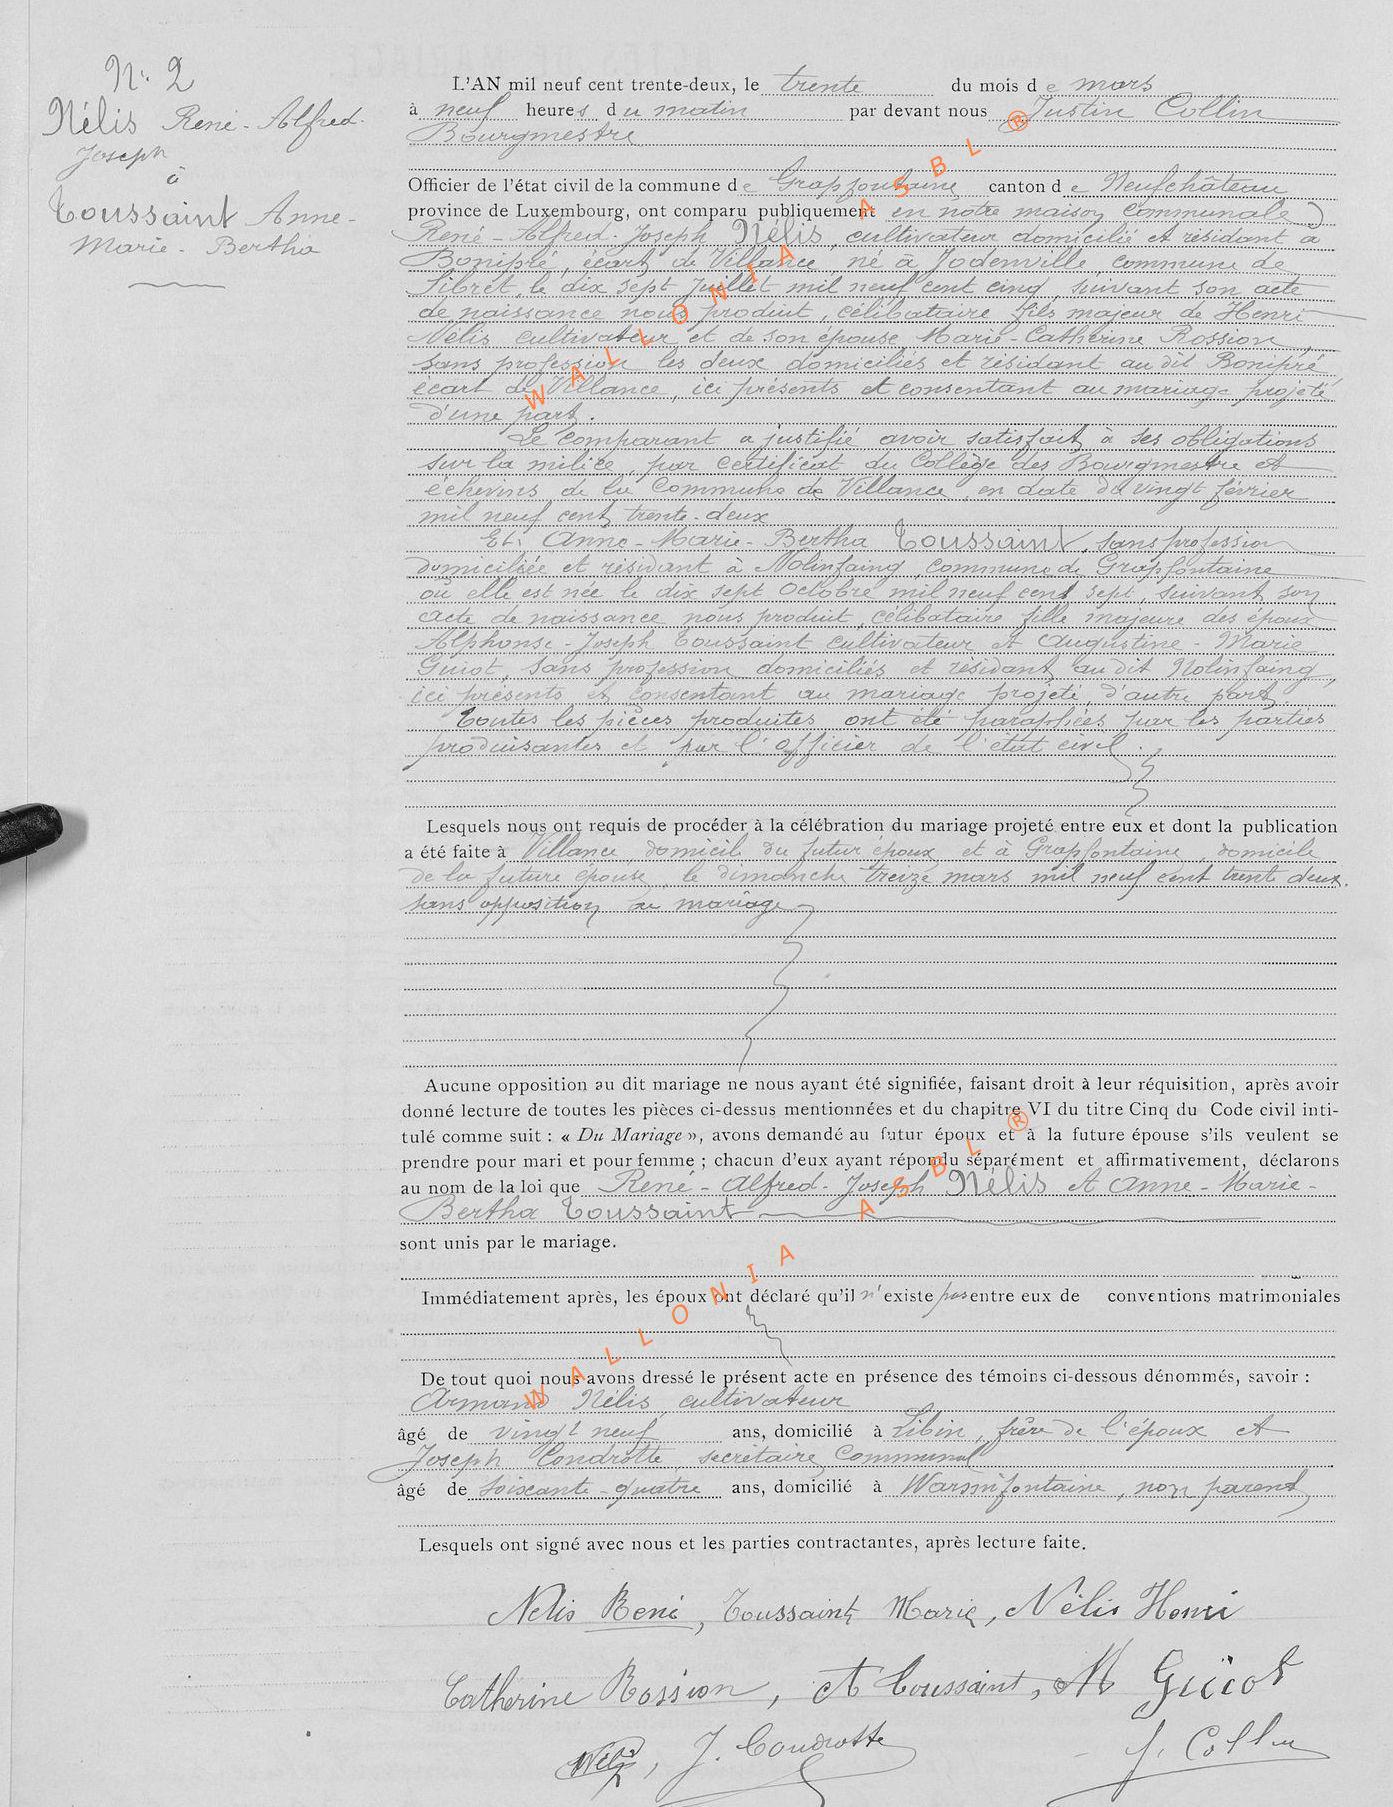 N° 2
Nélis René-Alfred-
Joseph
à
Toussaint Anne-
Marie-Bertha
L'AN mil neuf cent trente-deux, le trente du mois de mars
à neuf heures du matin par devant nous Justin Collin
Bourgmestre
Officier de l'état civil de la commune de Grapfontaine canton de Neufchâteau
province de Luxembourg, ont comparu publiquement en notre maison communale
René-Alfred-Joseph Nélis, cultivateur domicilié et résidant à
Bonipré, écart de Villance né à Jodenville commune de
Sibret, le dix sept Juillet mil neuf cent cinq, suivant son acte
de naissance nous produit, célibataire fils majeur de Henri
Nélis cultivateur et de son épouse Marie-Catherine Rossion,
sans profession les deux domiciliés et résidant au dit Bonipré
écart de Villance, ici présents et consentant au mariage projeté
d'une part.
Le comparant a justifié avoir satisfait à ses obligations
sur la milice, par certificat du Collège des Bourgmestre et
échevins de la Commune de Villance, en date du vingt février
mil neuf cent trente-deux
Et: Anne-Marie-Bertha Toussaint, sans profession
domiciliée et résidant à Nolinfaing, commune de Grapfontaine
où elle est née le dix sept Octobre mil neuf cent sept, suivant son
acte de naissance nous produit, célibataire fille majeure des époux
Alphonse-Joseph Toussaint cultivateur et Augustine-Marie
Guiot, sans profession domiciliés et résidant au dit Nolinfaing,
ici présents et consentant au mariage projeté, d'autre part.
Toutes les pièces produites ont été paraphées par les parties
produisantes et par l'officier de l'état civil.
Lesquels nous ont requis de procéder à la célébration du mariage projeté entre eux et dont la publication
a été faite à Villance, domicile du futur époux et à Grapfontaine, domicile
de la future épouse, le dimanche treize mars mil neuf cent trente deux.
sans opposition au mariage
Aucune opposition au dit mariage ne nous ayant été signifiée, faisant droit à leur réquisition, après avoir
donné lecture de toutes les pièces ci-dessus mentionnées et du chapitre VI du titre Cinq du Code civil inti-
tulé comme suit : « Du Mariage », avons demandé au futur époux et à la future épouse s'ils veulent se
prendre pour mari et pour femme ; chacun d'eux ayant répondu séparément et affirmativement, déclarons
au nom de la loi que René-Alfred-Joseph Nélis et Anne-Marie-
Bertha Toussaint
sont unis par le mariage.
Immédiatement après, les époux ont déclaré qu'il n'existe pas entre eux de conventions matrimoniales
De tout quoi nous avons dressé le présent acte en présence des témoins ci-dessous dénommés, savoir :
Armand Nélis, cultivateur
âgé de vingt neuf ans, domicilié à Libin, frère de l'époux et
Joseph Condrotte, secrétaire Communal
âgé de soixante-quatre ans, domicilié à Warmifontaine, non parent
Lesquels ont signé avec nous et les parties contractantes, après lecture faite.
Nelis René, Toussaint Marie, Nélis Henri
Catherine Rossion, A Toussaint, M Guiot
J. Condrotte J. Collin
WALLONIA ASBL ®
WALLONIA ASBL ®